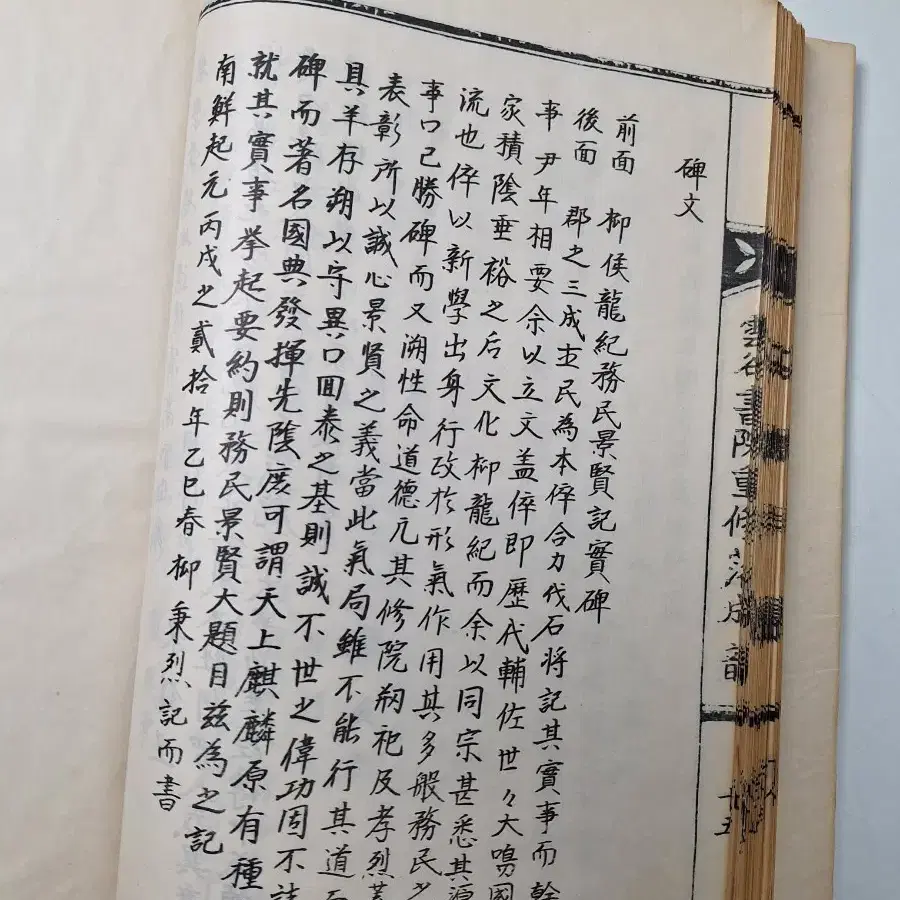 碑文
前面 柳侯龍紀務民景賢記實碑
後面 郡之三成主民為本倅合力伐石將記其實事而幹
事尹年相要余以立文盖倅即歷代輔佐世々大鳴國
家積陰垂裕之后文化柳龍紀而余以同宗甚悉其源
流也倅以新學出身行政於形氣作用其多般務民少
事口己勝碑而又溯性命道德亢其修院刱祀及孝烈
表彰所以誠心景賢之義當此氣局雖不能行其道
具羊存朔以守異口回泰之基則誠不世之偉功固不
碑而著名國典發揮先陰庶可謂天上麒麟原有種
就其實事挙起要約則務民景賢大題目茲為之記
南鮮起元丙戌之貳拾年乙巳春 柳秉烈記而書
雲谷書院重修落成韻
十五